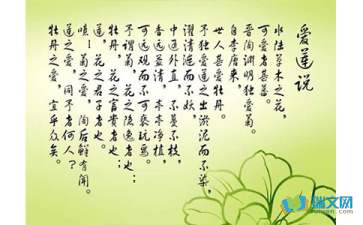 爱莲说
水陆草木之花，
可爱者甚蕃。
晋陶渊明独爱菊。
自李唐来，
世人甚爱牡丹。
予独爱莲之出淤泥而不染，
濯清涟而不妖，
中通外直，不蔓不枝，
香远益清，亭亭净植，
可远观而不可亵玩焉。
予谓菊，花之隐逸者也；
牡丹，花之富贵者也；
莲，花之君子者也。
噫！菊之爱，陶后鲜有闻。
莲之爱，同予者何人？
牡丹之爱，宜乎众矣。
瑞文网